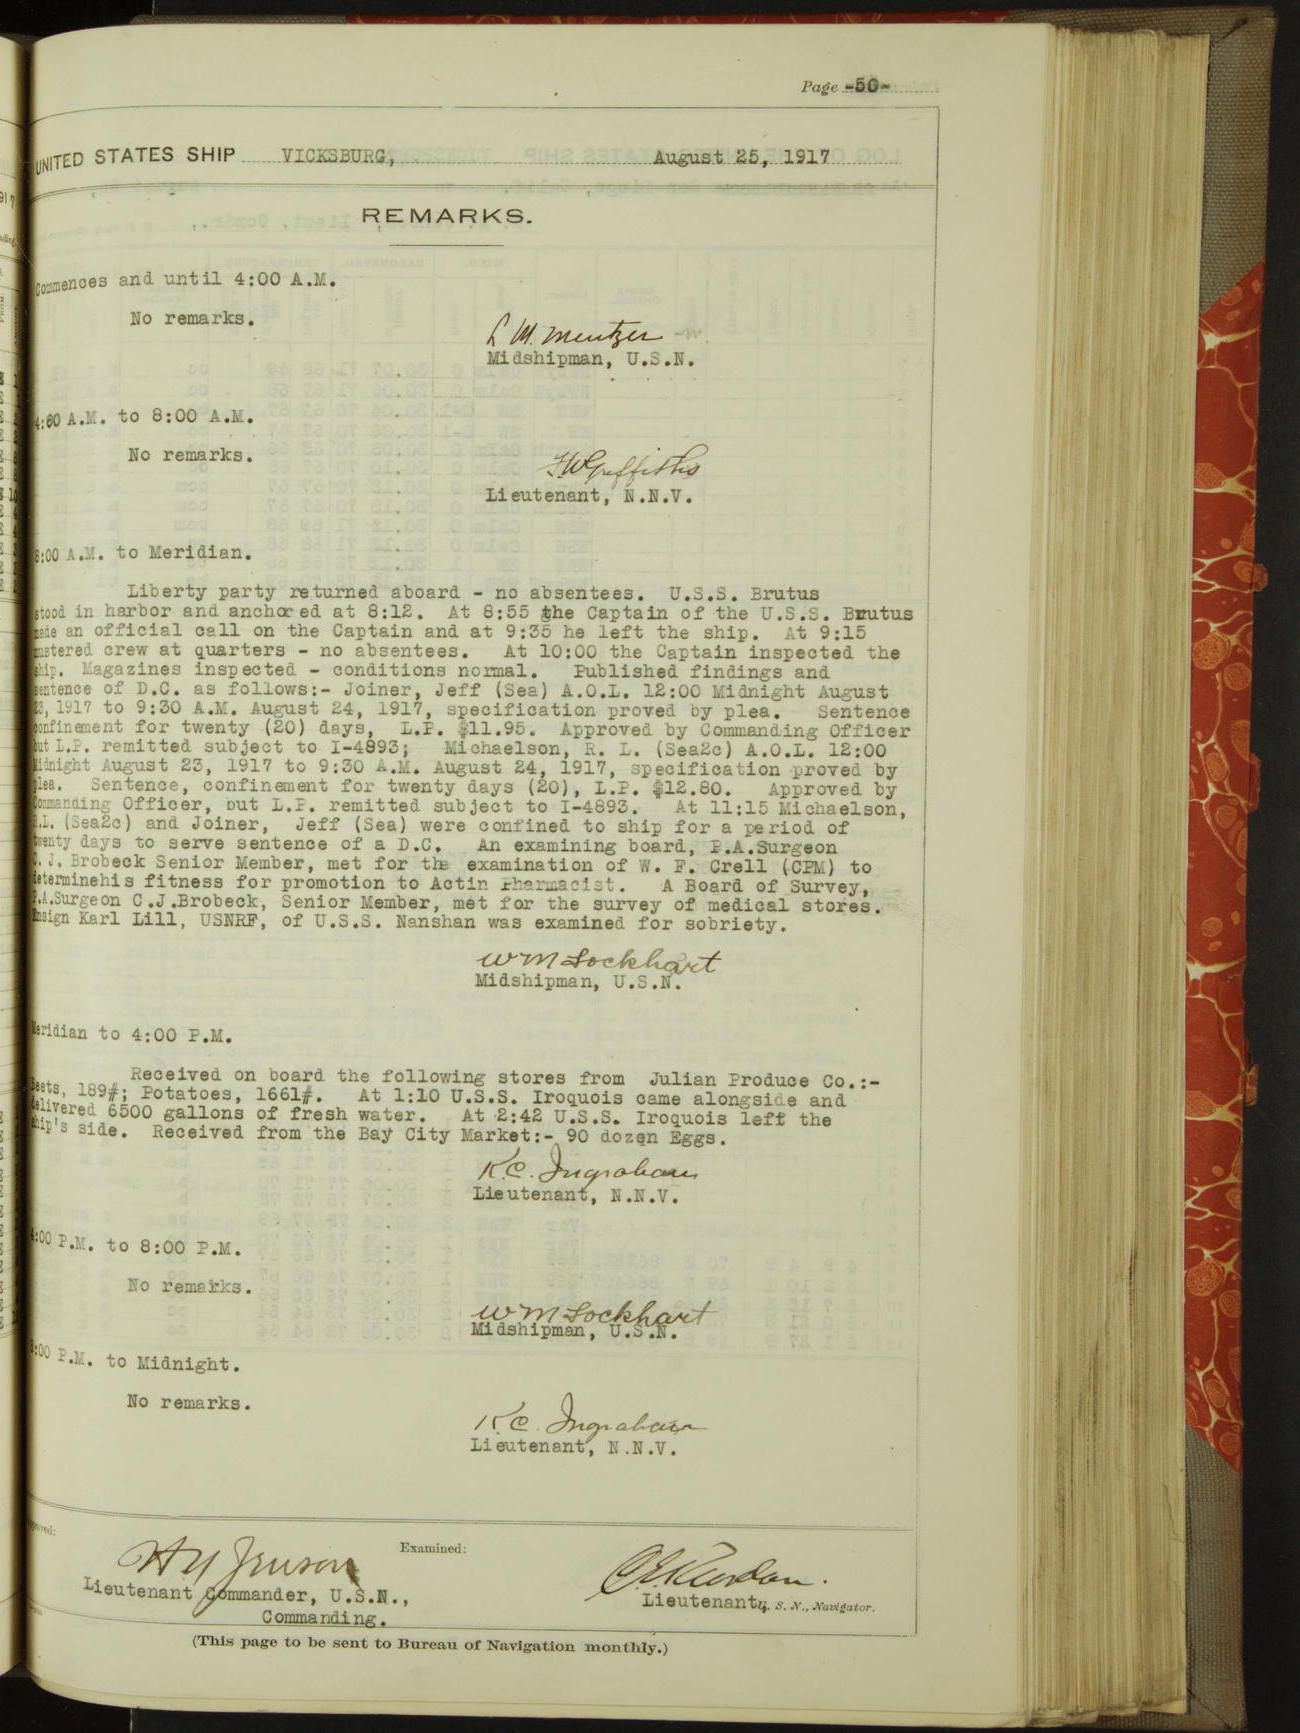 Page -50-
UNITED STATES SHIP VICKSBURG, August 25, 1917
REMARKS.
Commences and until 4:00 A.M.
No remarks.
L M. Mentzer
Midshipman, U.S.N.
4:00 A.M. to 8:00 A.M.
No remarks.
Griffiths
Lieutenant, N.N.V.
8:00 A.M. to Meridian.
Liberty party returned aboard - no absentees. U.S.S. Brutus
stood in harbor and anchored at 8:12. At 8:55 the Captain of the U.S.S. Brutus
made an official call on the Captain and at 9:35 he left the ship. At 9:15
mustered crew at quarters - no absentees. At 10:00 the Captain inspected the
ship. Magazines inspected - conditions normal. Published findings and
sentence of D.C. as follows:- Joiner, Jeff (Sea) A.O.L. 12:00 Midnight August
23, 1917 to 9:30 A.M. August 24, 1917, specification proved by plea. Sentence
confinement for twenty (20) days, L.P. $11.95. Approved by Commanding Officer
but L.P. remitted subject to I-4893; Michaelson, R. L. (Sea2c) A.O.L. 12:00
Midnight August 23, 1917 to 9:30 A.M. August 24, 1917, specification proved by
plea. Sentence, confinement for twenty days (20), L.P. $12.80. Approved by
Commanding Officer, but L.P. remitted subject to I-4893. At 11:15 Michaelson,
R.L. (Sea2c) and Joiner, Jeff (Sea) were confined to ship for a period of
twenty days to serve sentence of a D.C. An examining board, P.A.Surgeon
C. J. Brobeck Senior Member, met for the examination of W. F. Crell (CPM) to
determinehis fitness for promotion to Actin Pharmacist. A Board of Survey,
P.A.Surgeon C.J.Brobeck, Senior Member, met for the survey of medical stores.
Ensign Karl Lill, USNRF, of U.S.S. Nanshan was examined for sobriety.
W M Lockhart
Midshipman, U.S.N.
Meridian to 4:00 P.M.
Received on board the following stores from Julian Produce Co.:-
Beets, 189#; Potatoes, 1661#. At 1:10 U.S.S. Iroquois came alongside and
delivered 6500 gallons of fresh water. At 2:42 U.S.S. Iroquois left the
ship's side. Received from the Bay City Market:- 90 dozen Eggs.
K.C. Ingraham
Lieutenant, N.N.V.
4:00 P.M. to 8:00 P.M.
No remarks.
W M Lockhart
Midshipman, U.S.N.
8:00 P.M. to Midnight.
No remarks.
K.C. Ingraham
Lieutenant, N.N.V.
Approved:
Examined:
Lieutenant Commander, U.S.N.,
Commanding.
Lieutenant, U. S. N., Navigator.
(This page to be sent to Bureau of Navigation monthly.)